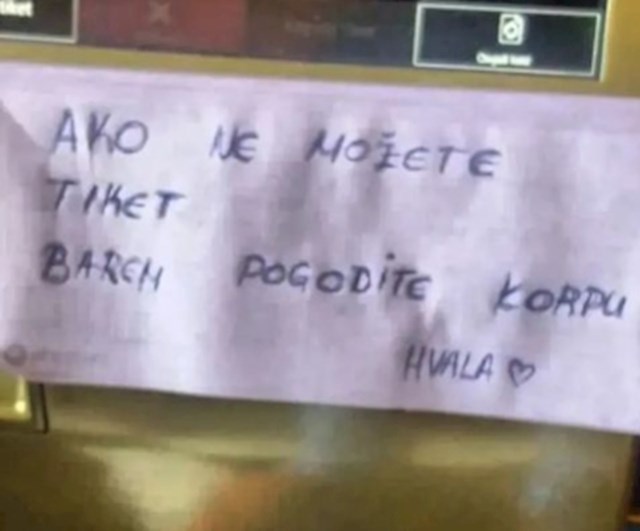 tiket
AKO NE MOŽETE
TIKET
BAREM POGODITE KORPU
HVALA ♡